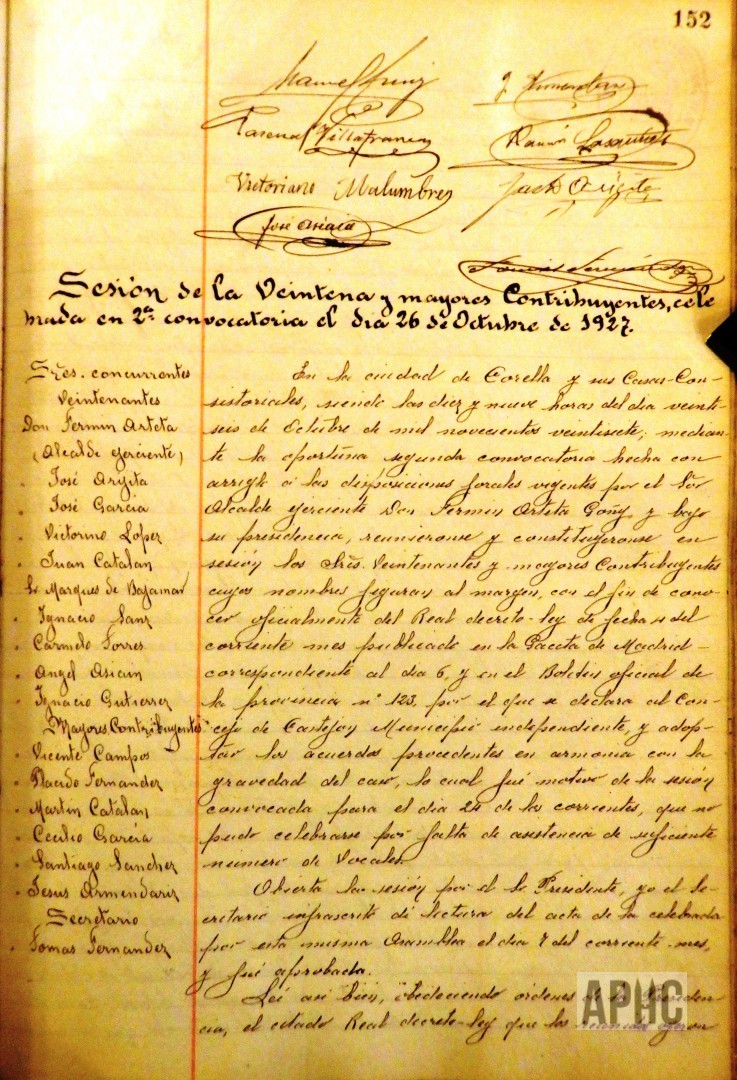 152
Pascual Villafranca
Ramón
Victoriano Malumbres
José Asiain
Sesión de la Veintena y mayores Contribuyentes, cele
brada en 2ª convocatoria el día 26 de Octubre de 1927.
Sres. concurrentes
Veintenantes
Don Fermin Arteta
(Alcalde ejerciente)
" José Argita
" José García
" Victorino Lopez
" Juan Catalan
Sr Marques de Bajamar
" Ignacio Sanz
" Carmelo Torres
" Angel Asiain
" Ignacio Gutierrez
Mayores Contribuyentes
" Vicente Campos
" Placido Fernandez
" Martin Catalan
" Cecilio García
" Santiago Sanchez
" Jesus Armendariz
Secretario
" Tomas Fernandez
En la ciudad de Corella y sus Casas-Con-
sistoriales, siendo las diez y nueve horas del día veinti-
seis de Octubre de mil novecientos veintisiete; median-
te la oportuna segunda convocatoria hecha con
arreglo á las disposiciones forales vigentes por el Sor
Alcalde ejerciente Don Fermin Arteta Goñi y bajo
su presidencia, reunieronse y constituyeronse en
sesión los Sres. Veintenantes y mayores Contribuyentes
cuyos nombres figuran al margen, con el fin de cono-
cer oficialmente del Real decreto-ley de fecha 4 del
corriente mes publicado en la Gaceta de Madrid
correspondiente al día 6, y en el Boletin oficial de
la provincia nº 123, por el que se declara al Con-
cejo de Castejon Municipio independiente, y adop-
tar los acuerdos procedentes en armonía con la
gravedad del caso, lo cual fué motivo de la sesión
convocada para el día 24 de los corrientes, que no
pudo celebrarse por falta de asistencia de suficiente
número de Vocales.
Abierta la sesión por el Sr Presidente, yo el Se-
cretario infrascrito dí lectura del acta de la celebrada
por esta misma Asamblea el día 7 del corriente mes,
y fué aprobada.
Leí asi bien, obedeciendo órdenes de la Presiden-
cia, el citado Real decreto-ley que los
APHC